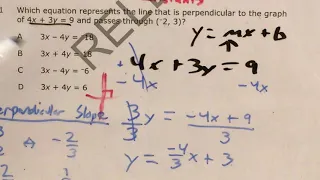 Which equation represents the line that is perpendicular to the graph
of 4x + 3y = 9 and passes through (⁻2, 3)?
A 3x − 4y = ⁻18
B 3x + 4y = 18
C 3x − 4y = ⁻6
D 3x + 4y = 6
y = mx + b
4x + 3y = 9
-4x -4x
3y/3 = -4x + 9/3
y = -4/3 x + 3
Perpendicular Slope
-2/3